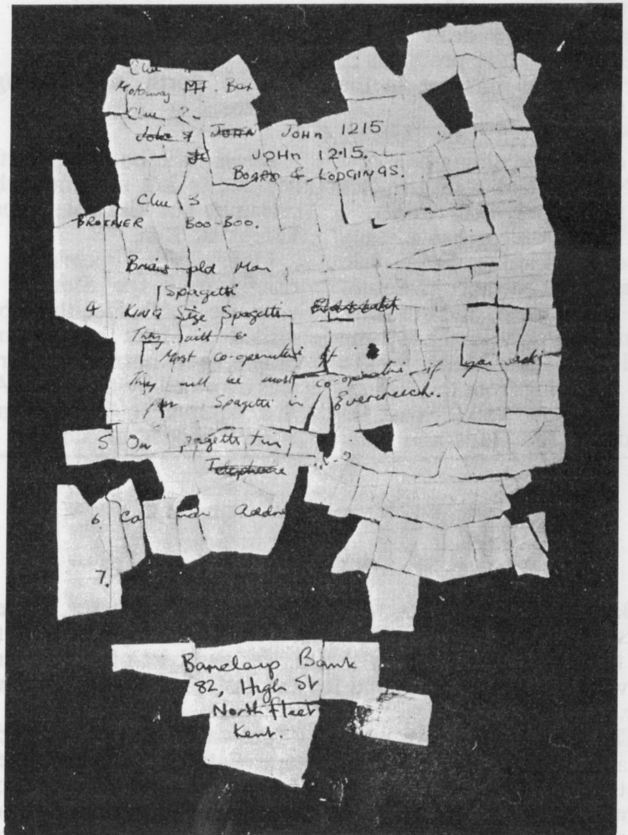 Clue
Motorway MT. Box
Clue 2.
John JOHN JOHN 1215
JOHN 1215.
BOARD & LODGINGS.
Clue 3
BROTHER BOO-BOO.
Brians old Man
Spagetti
4 KING Size Spagetti
They will
Most co-operative if
They will be most co-operative if you ask
for Spagetti in Evercreech.
5 On Spagetti tin,
Telephone
6. Ca man Addre
7.
Barclays Bank
82, High St
Northfleet
Kent.